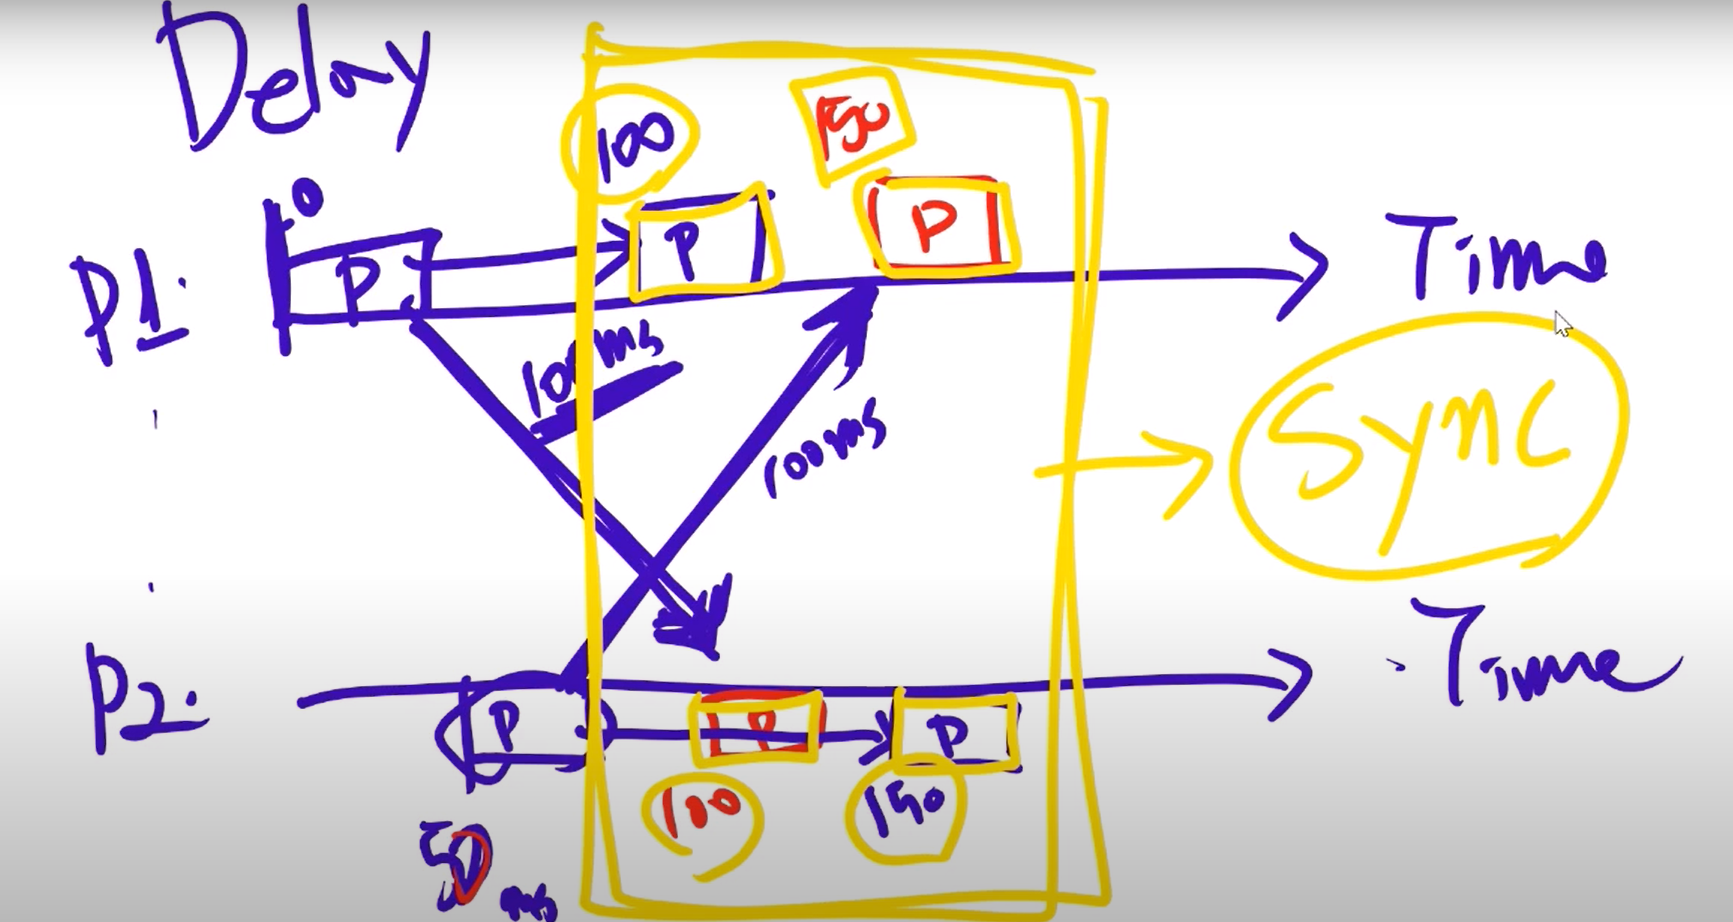 Delay
100
150
0
P1:
P
P
P
Time
100ms
100ms
Sync
P2:
P
P
P
Time
100
150
50 ms